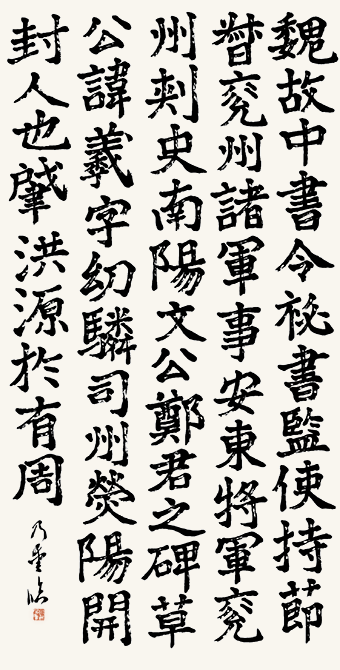 魏故中書令祕書監使持節
督兗州諸軍事安東將軍兗
州刾史南陽文公鄭君之碑草
公諱羲字幼驎司州熒陽開
封人也肇洪源於有周
乃重臨